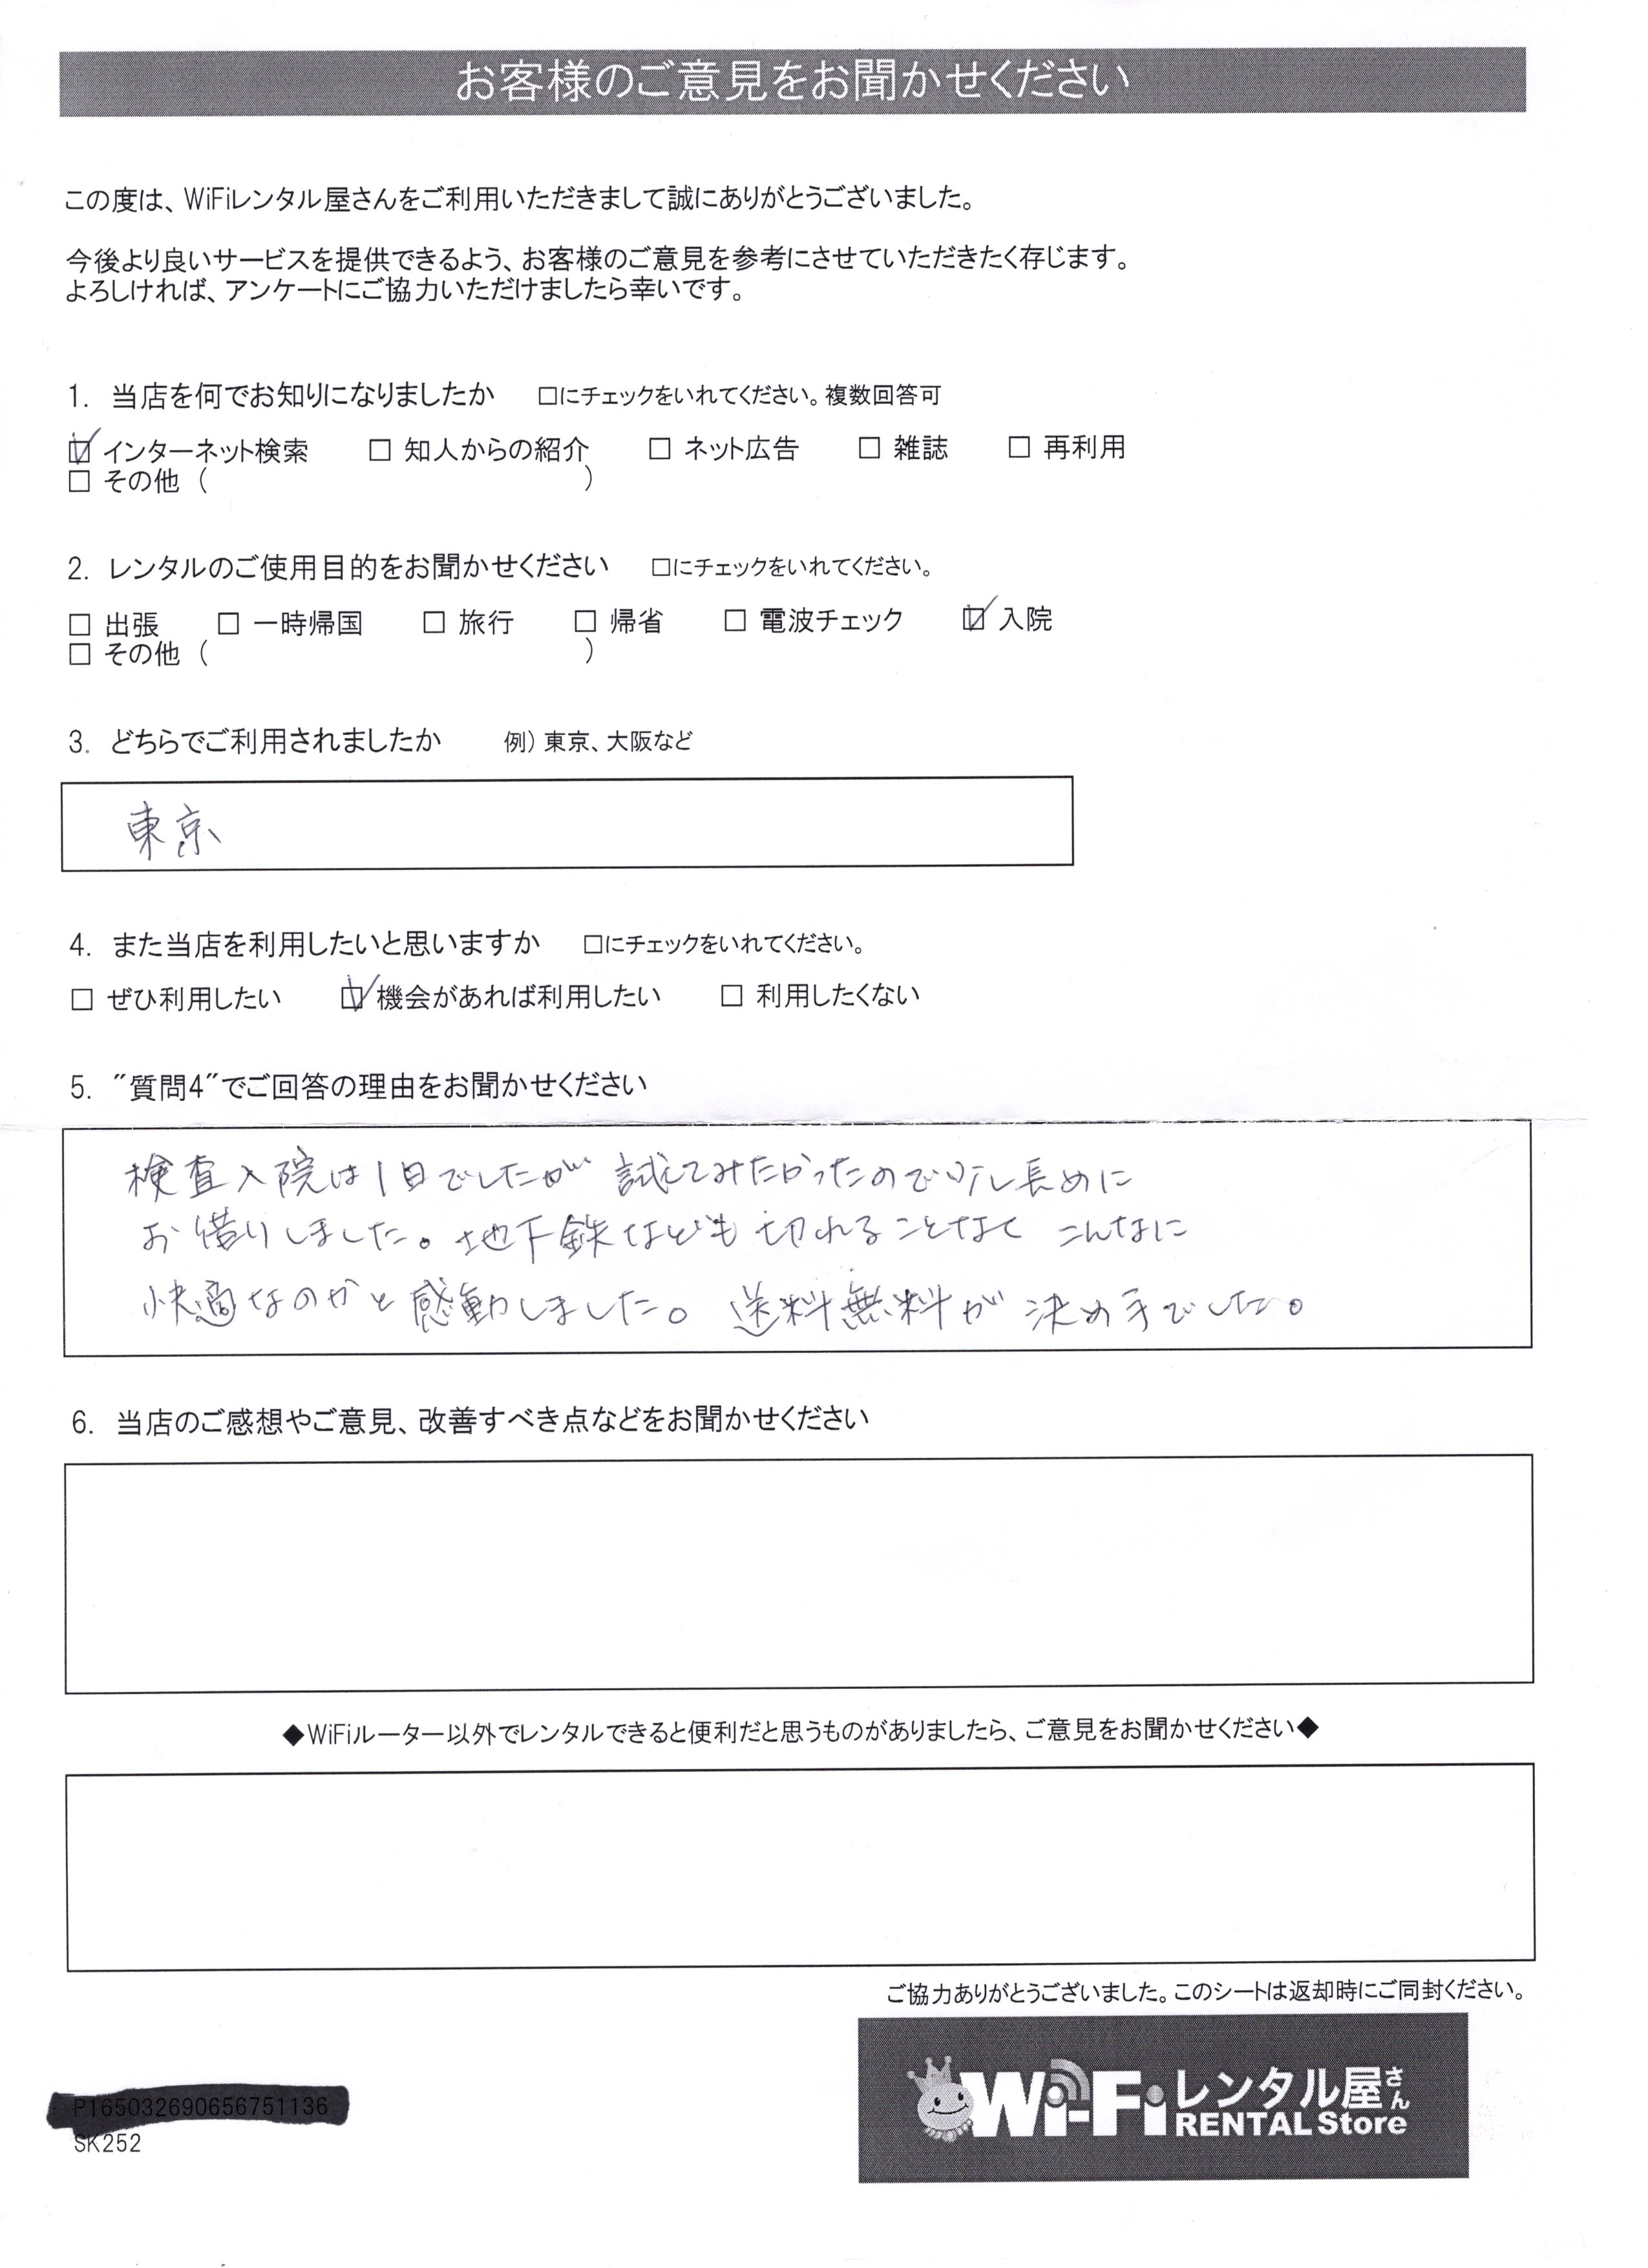 お客様のご意見をお聞かせください
この度は、WiFiレンタル屋さんをご利用いただきまして誠にありがとうございました。
今後より良いサービスを提供できるよう、お客様のご意見を参考にさせていただきたく存じます。
よろしければ、アンケートにご協力いただけましたら幸いです。
1. 当店を何でお知りになりましたか □にチェックをいれてください。複数回答可
☑ インターネット検索 □ 知人からの紹介 □ ネット広告 □ 雑誌 □ 再利用
□ その他 ( )
2. レンタルのご使用目的をお聞かせください □にチェックをいれてください。
□ 出張 □ 一時帰国 □ 旅行 □ 帰省 □ 電波チェック ☑ 入院
□ その他 ( )
3. どちらでご利用されましたか 例) 東京、大阪など
東京
4. また当店を利用したいと思いますか □にチェックをいれてください。
□ ぜひ利用したい ☑ 機会があれば利用したい □ 利用したくない
5. "質問4"でご回答の理由をお聞かせください
検査入院は1日でしたが 試してみたかったので少し長めに
お借りしました。地下鉄なども切れることなく こんなに
快適なのかと感動しました。送料無料が決め手でした。
6. 当店のご感想やご意見、改善すべき点などをお聞かせください
◆WiFiルーター以外でレンタルできると便利だと思うものがありましたら、ご意見をお聞かせください◆
ご協力ありがとうございました。このシートは返却時にご同封ください。
Wi-Fiレンタル屋さん
RENTAL Store
SK252